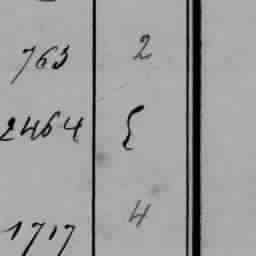 763 2
2464 {
1717 4